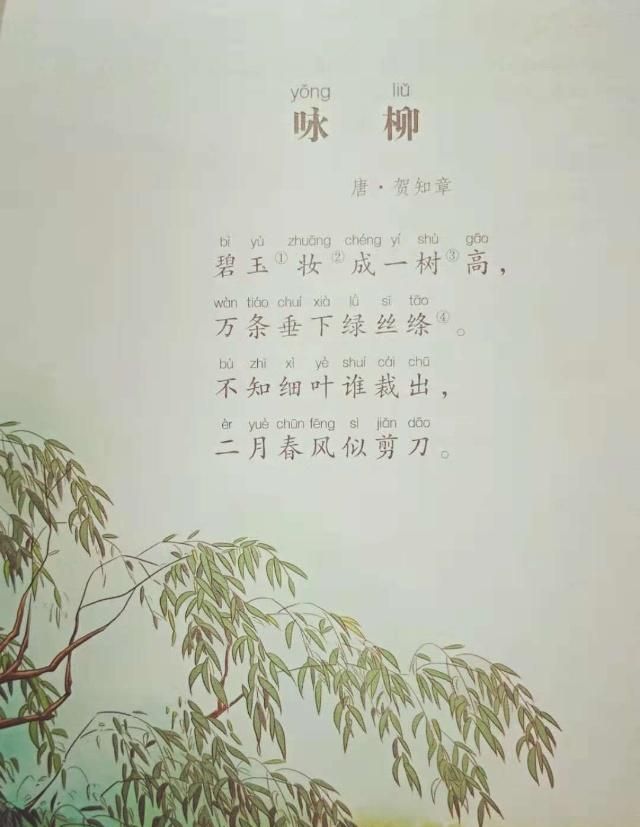 yǒng liǔ
咏 柳
唐·贺知章
bì yù zhuāng chéng yí shù gāo
碧玉①妆②成一树③高，
wàn tiáo chuí xià lǜ sī tāo
万条垂下绿丝绦④。
bù zhī xì yè shuí cái chū
不知细叶谁裁出，
èr yuè chūn fēng sì jiǎn dāo
二月春风似剪刀。